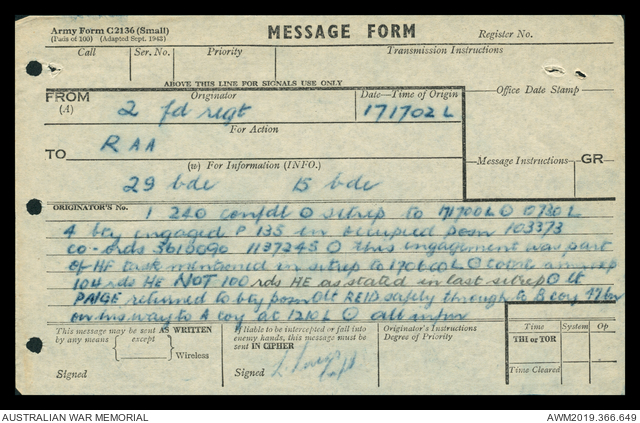 Army Form C2136 (Small)
(Pads of 100) (Adapted Sept. 1943)
MESSAGE FORM
Register No.
Call Ser. No. Priority Transmission Instructions
ABOVE THIS LINE FOR SIGNALS USE ONLY
FROM (A) Originator Date—Time of Origin Office Date Stamp
2 fd regt 171702 L
For Action
TO RAA
(w) For Information (INFO.) Message Instructions GR
29 bde 15 bde
ORIGINATOR'S No. 1 240 confdl O sitrep to 171700L O 0730 L
4 bty engaged P 135 in occupied posn 103373
co-ords 3615090 1137245 O this engagement was part
of HF task mentioned in sitrep to 170600L O total amn exp
104 rds HE NOT 100 rds HE as stated in last sitrep O lt
PAIGE returned to bty posn O lt REID safely through to B coy 47 bn
on his way to A coy at 1210 L O all infm
This message may be sent AS WRITTEN by any means except Wireless
Signed
If liable to be intercepted or fall into enemy hands, this message must be sent IN CIPHER
Signed
Originator's Instructions
Degree of Priority
Time System Op
THI or TOR
Time Cleared
AUSTRALIAN WAR MEMORIAL AWM2019.366.649